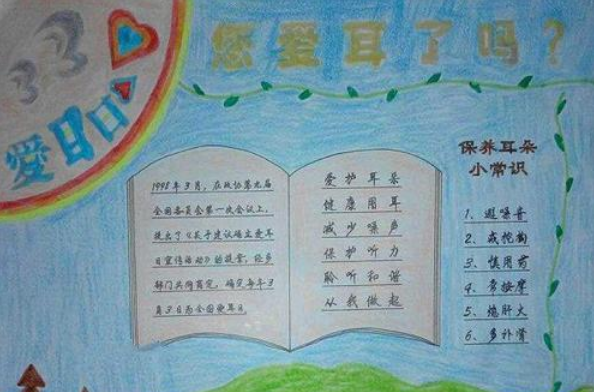 您爱耳了吗？
3.3
愛耳日
1998年3月，在政协第九届
全国委员会第一次会议上，
提出了《关于建议确立爱耳
日宣传活动》的提案，经多
部门共同商定，确定每年3
月3日为全国爱耳日。
爱护耳朵
健康用耳
减少噪声
保护听力
聆听和谐
从我做起
保养耳朵
小常识
1、避噪音
2、戒挖掏
3、慎用药
4、常按摩
5、熄肝火
6、多补肾